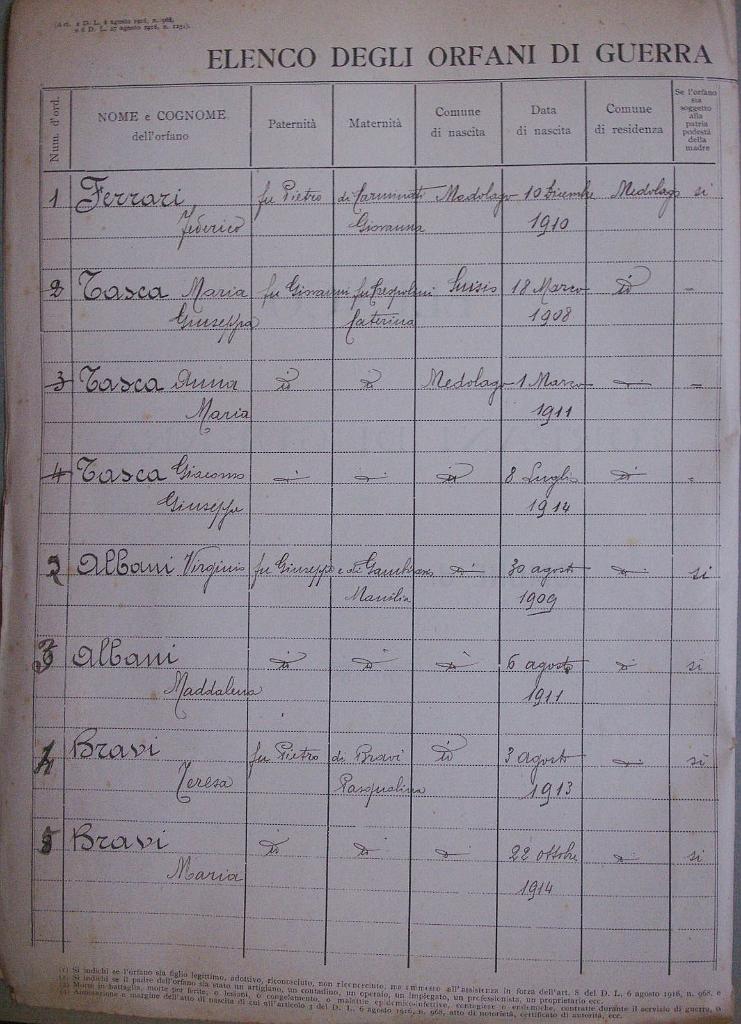 (Art. 2 D. L. 6 agosto 1916, n. 968,
e 6 D. L. 27 agosto 1916, n. 1251).
ELENCO DEGLI ORFANI DI GUERRA
Num. d'ord.
NOME e COGNOME
dell'orfano
Paternità
Maternità
Comune
di nascita
Data
di nascita
Comune
di residenza
Se l'orfano
sia
soggetto
alla
patria
podestà
della
madre
1 Ferrari fu Pietro di Carminati Medolago 10 Dicembre Medolago si
Federico Giovanna 1910
2 Tasca Maria fu Giovanni fu Crespolini Suisio 18 Marzo id -
Giuseppa Caterina 1908
3 Tasca Anna id id Medolago 1 Marzo id -
Maria 1911
4 Tasca Giacomo id id id 8 Luglio id -
Giuseppe 1914
2 Albani Virginio fu Giuseppe e di id 30 agosto id si
Manilia 1909
3 Albani id id id 6 agosto id si
Maddalena 1911
4 Bravi fu Pietro di Bravi id 3 agosto id si
Teresa Pasqualina 1913
5 Bravi id id id 22 ottobre id si
Maria 1914
(1) Si indichi se l'orfano sia figlio legittimo, adottivo, riconosciuto, non riconosciuto, ma ammesso all'assistenza in forza dell'art. 8 del D. L. 6 agosto 1916, n. 968, e
(2) Si indichi se il padre dell'orfano sia stato un artigiano, un contadino, un operaio, un impiegato, un professionista, un proprietario ecc.
(3) Morte in battaglia, morte per ferite, o lesioni, o congelamento, o malattie epidemico-infettive, contagiose o endemiche, contratte durante il servizio di guerra, o
(4) Annotazione a margine dell'atto di nascita di cui all'articolo 3 del D. L. 6 agosto 1916, n. 968, atto di notorietà, certificato di autorità, ecc.